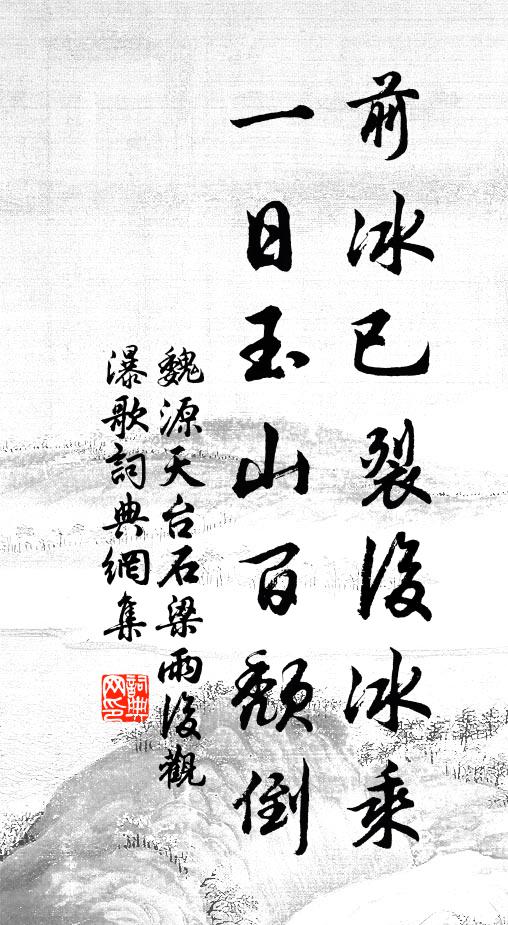 前冰已裂後冰乘
一日玉山百頹倒
魏源天台石梁雨後觀
瀑歌詞典網集
詞典
网印